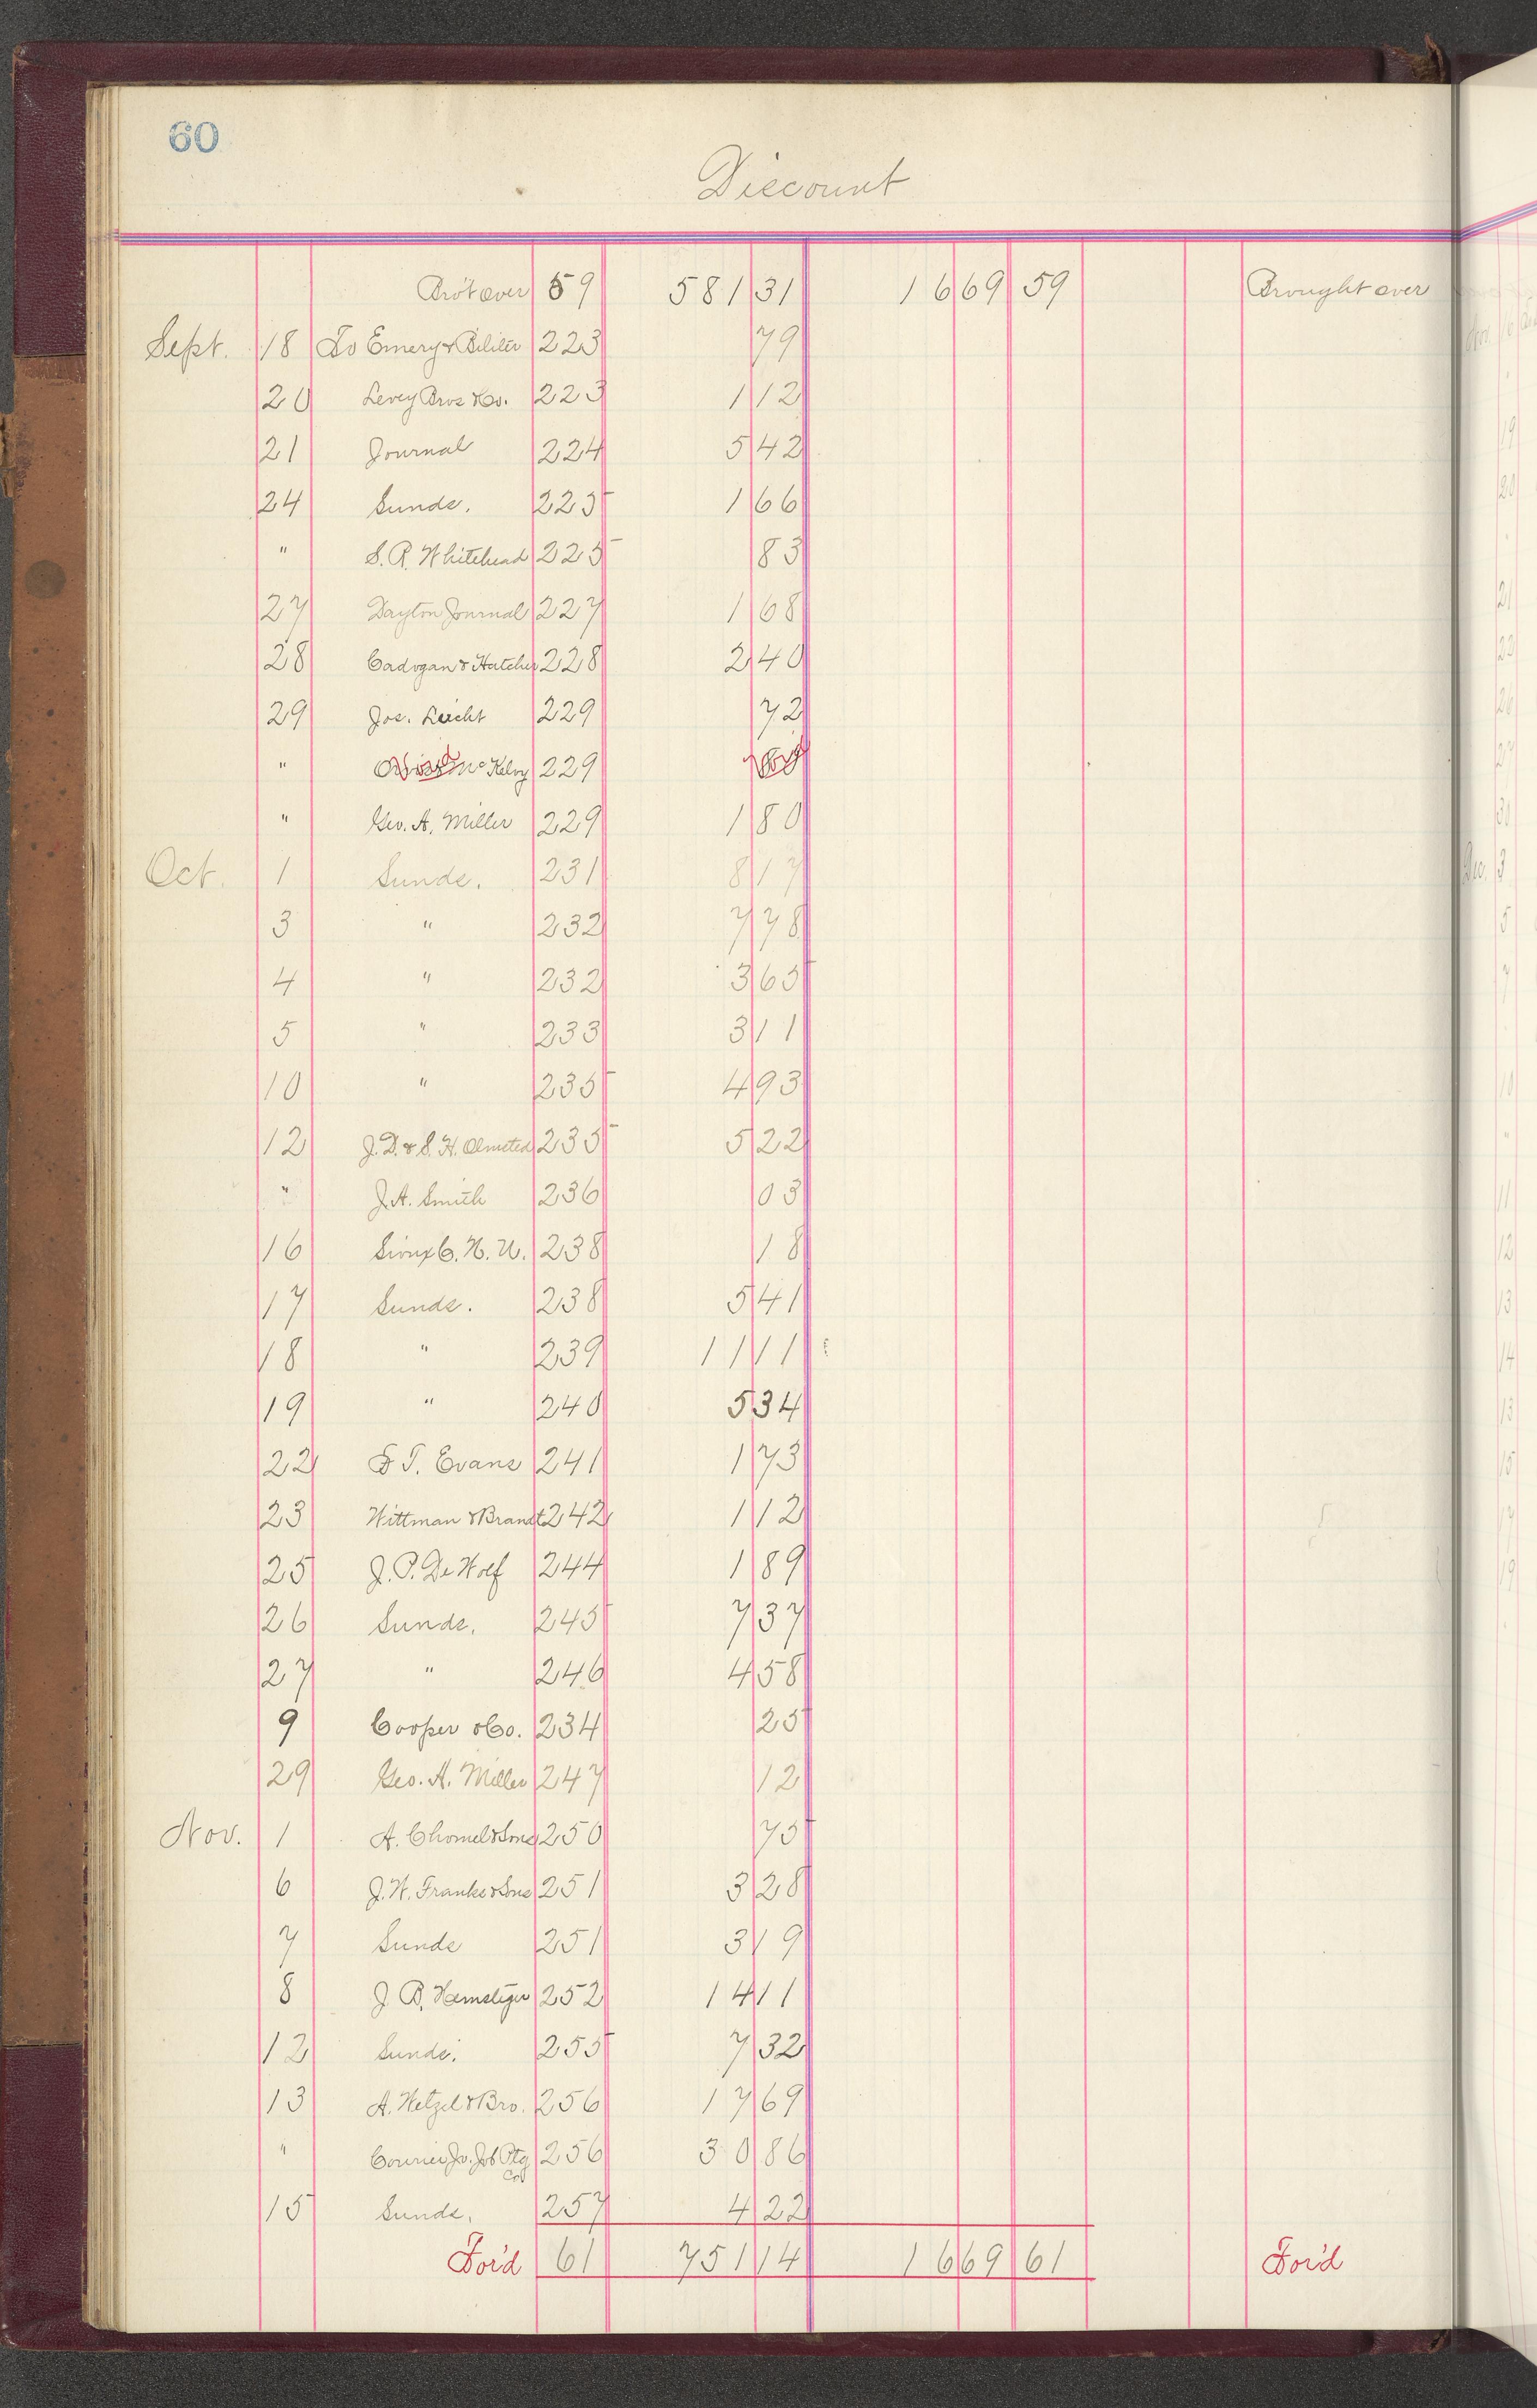 60
Discount
Bro't over 59 581 31 16 69 59 Brought over
Sept. 18 To Emery & 223 79
20 Levey Bros & Co. 223 1 12
21 Journal 224 5 42
24 Sunds. 225 1 66
" S. P. Whitehead 225 83
27 Dayton Journal 227 1 68
28 Cadogan & Hatcher 228 2 40
29 Jos. Leicht 229 72
" McKelvy 229
" Geo. A. Miller 229 1 80
Oct. 1 Sunds. 231 8 17
3 " 232 7 78
4 " 232 3 65
5 " 233 3 11
10 " 235 4 93
12 J. D. & S. H. Olmsted 235 5 22
" J. A. Smith 236 03
16 Sioux C. N. U. 238 18
17 Sunds. 238 5 41
18 " 239 11 11
19 " 240 5 34
22 T. Evans 241 1 73
23 Wittman & Brandt 242 1 12
25 J. P. De Wolf 244 1 89
26 Sunds. 245 7 37
27 " 246 4 58
9 Cooper & Co. 234 25
29 Geo. A. Miller 247 12
Nov. 1 A. Chomel & Sons 250 75
6 J. W. Franks & Sons 251 3 28
7 Sunds 251 3 19
8 J. B. 252 14 11
12 Sunds. 255 7 32
13 A. Wetzel & Bro. 256 17 69
" Courier Jo. Job Ptg Co 256 30 86
15 Sunds. 257 4 22
For'd 61 751 14 16 69 61 For'd